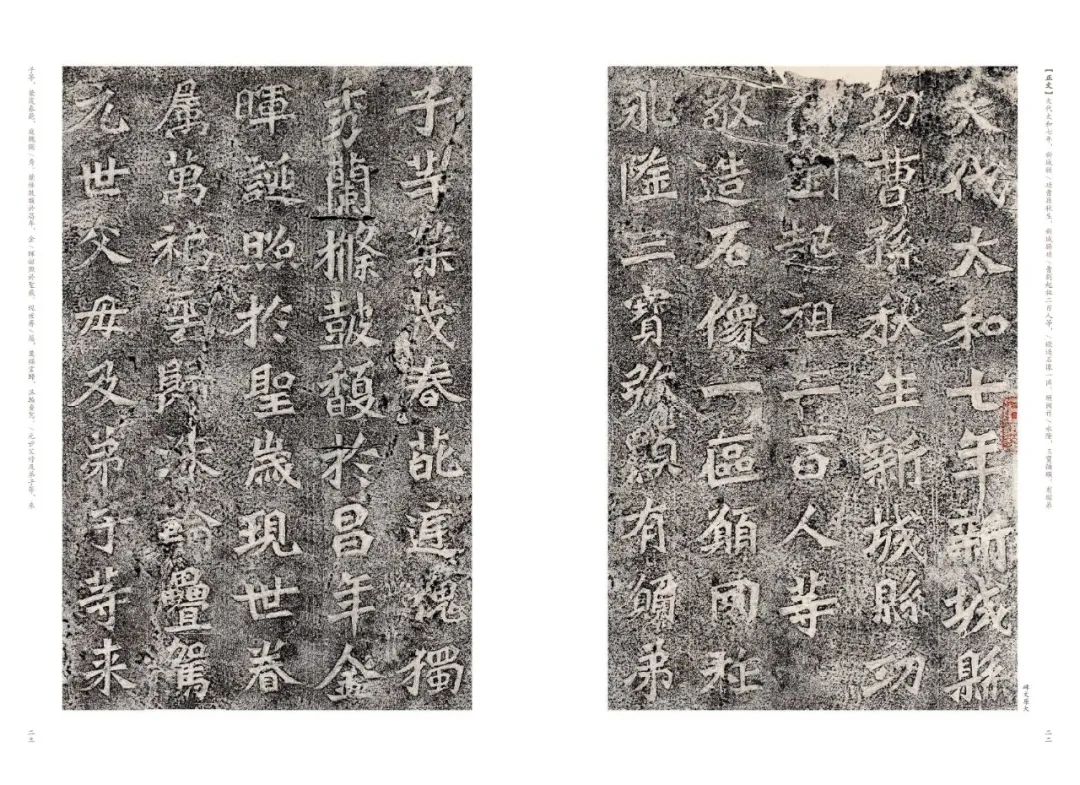 【正文】大代太和七年，新城縣/功曹孫秋生、新城縣功/曹劉起祖二百人等，/敬造石像一區，願國祚/永隆，三寶彌顯。有願弟
大代太和七年新城縣
功曹孫秋生新城縣功
曹劉起祖二百人等
敬造石像一區願國祚
永隆三寶弥顯有願弟
碑文原大
二二
子等榮茂春葩庭槐獨
秀蘭條鼓馥於昌年金
暉誕照於聖歲現世眷
屬萬福雲歸洙輪疊駕
元世父母及弟子等来
子等，榮茂春葩，庭槐獨/秀，蘭條鼓馥於昌年，金/暉誕照於聖歲。現世眷/屬，萬福雲歸，洙輪疊駕。/元世父母及弟子等，来
二三